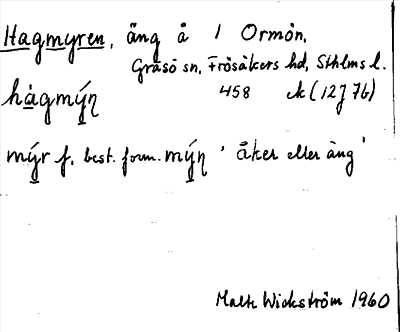 Hagmyren, äng å / Ormön,
Gräsö sn, Frösåkers hd, Sthlms l.
hàgmýn̥ 458 ek (12J 7b)
mýr f. best. form. mýn̥ 'åker eller äng'
Malte Wickström 1960